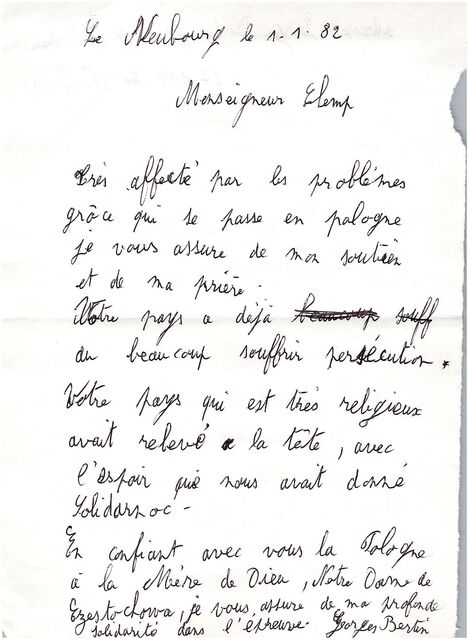 Le Neubourg le 1.1.82
Monseigneur Glemp
Très affecté par les problèmes
grâce qui se passe en pologne
je vous assure de mon soutien
et de ma prière.
Votre pays a déjà beaucoup souff
du beaucoup souffrir persécution.
Votre pays qui est très religieux
avait relevé la tête, avec
l'espoir que nous avait donné
Solidarnoc -
En confiant avec vous la Pologne
à la Mère de Dieu, Notre Dame de
Czestochowa, je vous assure de ma profonde
solidarité dans l'épreuve. Georges Bertin